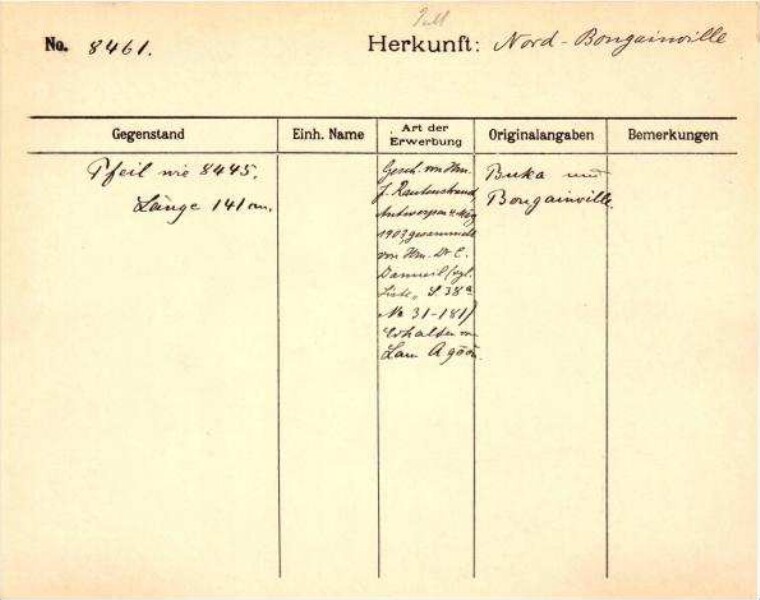 No. 8461.
Herkunft: Nord-Bougainville
Gegenstand
Einh. Name
Art der Erwerbung
Originalangaben
Bemerkungen
Pfeil wie 8445.
Länge 141 cm.
Gesch. von Hrn.
J. Rautenstrauch,
Antwerpen 4. May
1903, gesammelt
von Hrn. Dr. C.
(vgl.
Liste, S. 38a
No 31-181)
Erhalten von
Buka und
Bougainville.